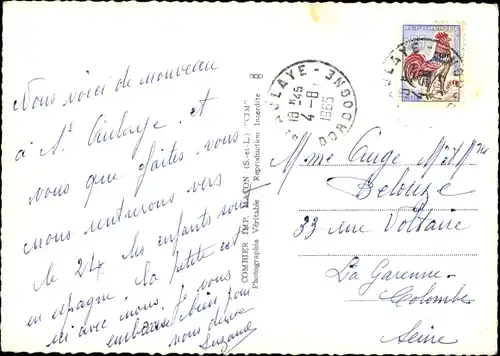 Nous voici de nouveau
à St Aulaye et
vous que faites vous
nous rentrerons vers
le 24 les enfants sont
en espagne la petite est
ici avec nous je vous
embrasse bien pour
vous deux
Suzanne
COMBIER IMP. MACON (S.-et-L.) "CIM"
Photographie Véritable Reproduction Interdite
AULAYE - DORDOGNE
18H45
4-8
1965
Mme Auge Mr et Mme
Belouze
33 rue Voltaire
La Garenne-
Colombe
Seine